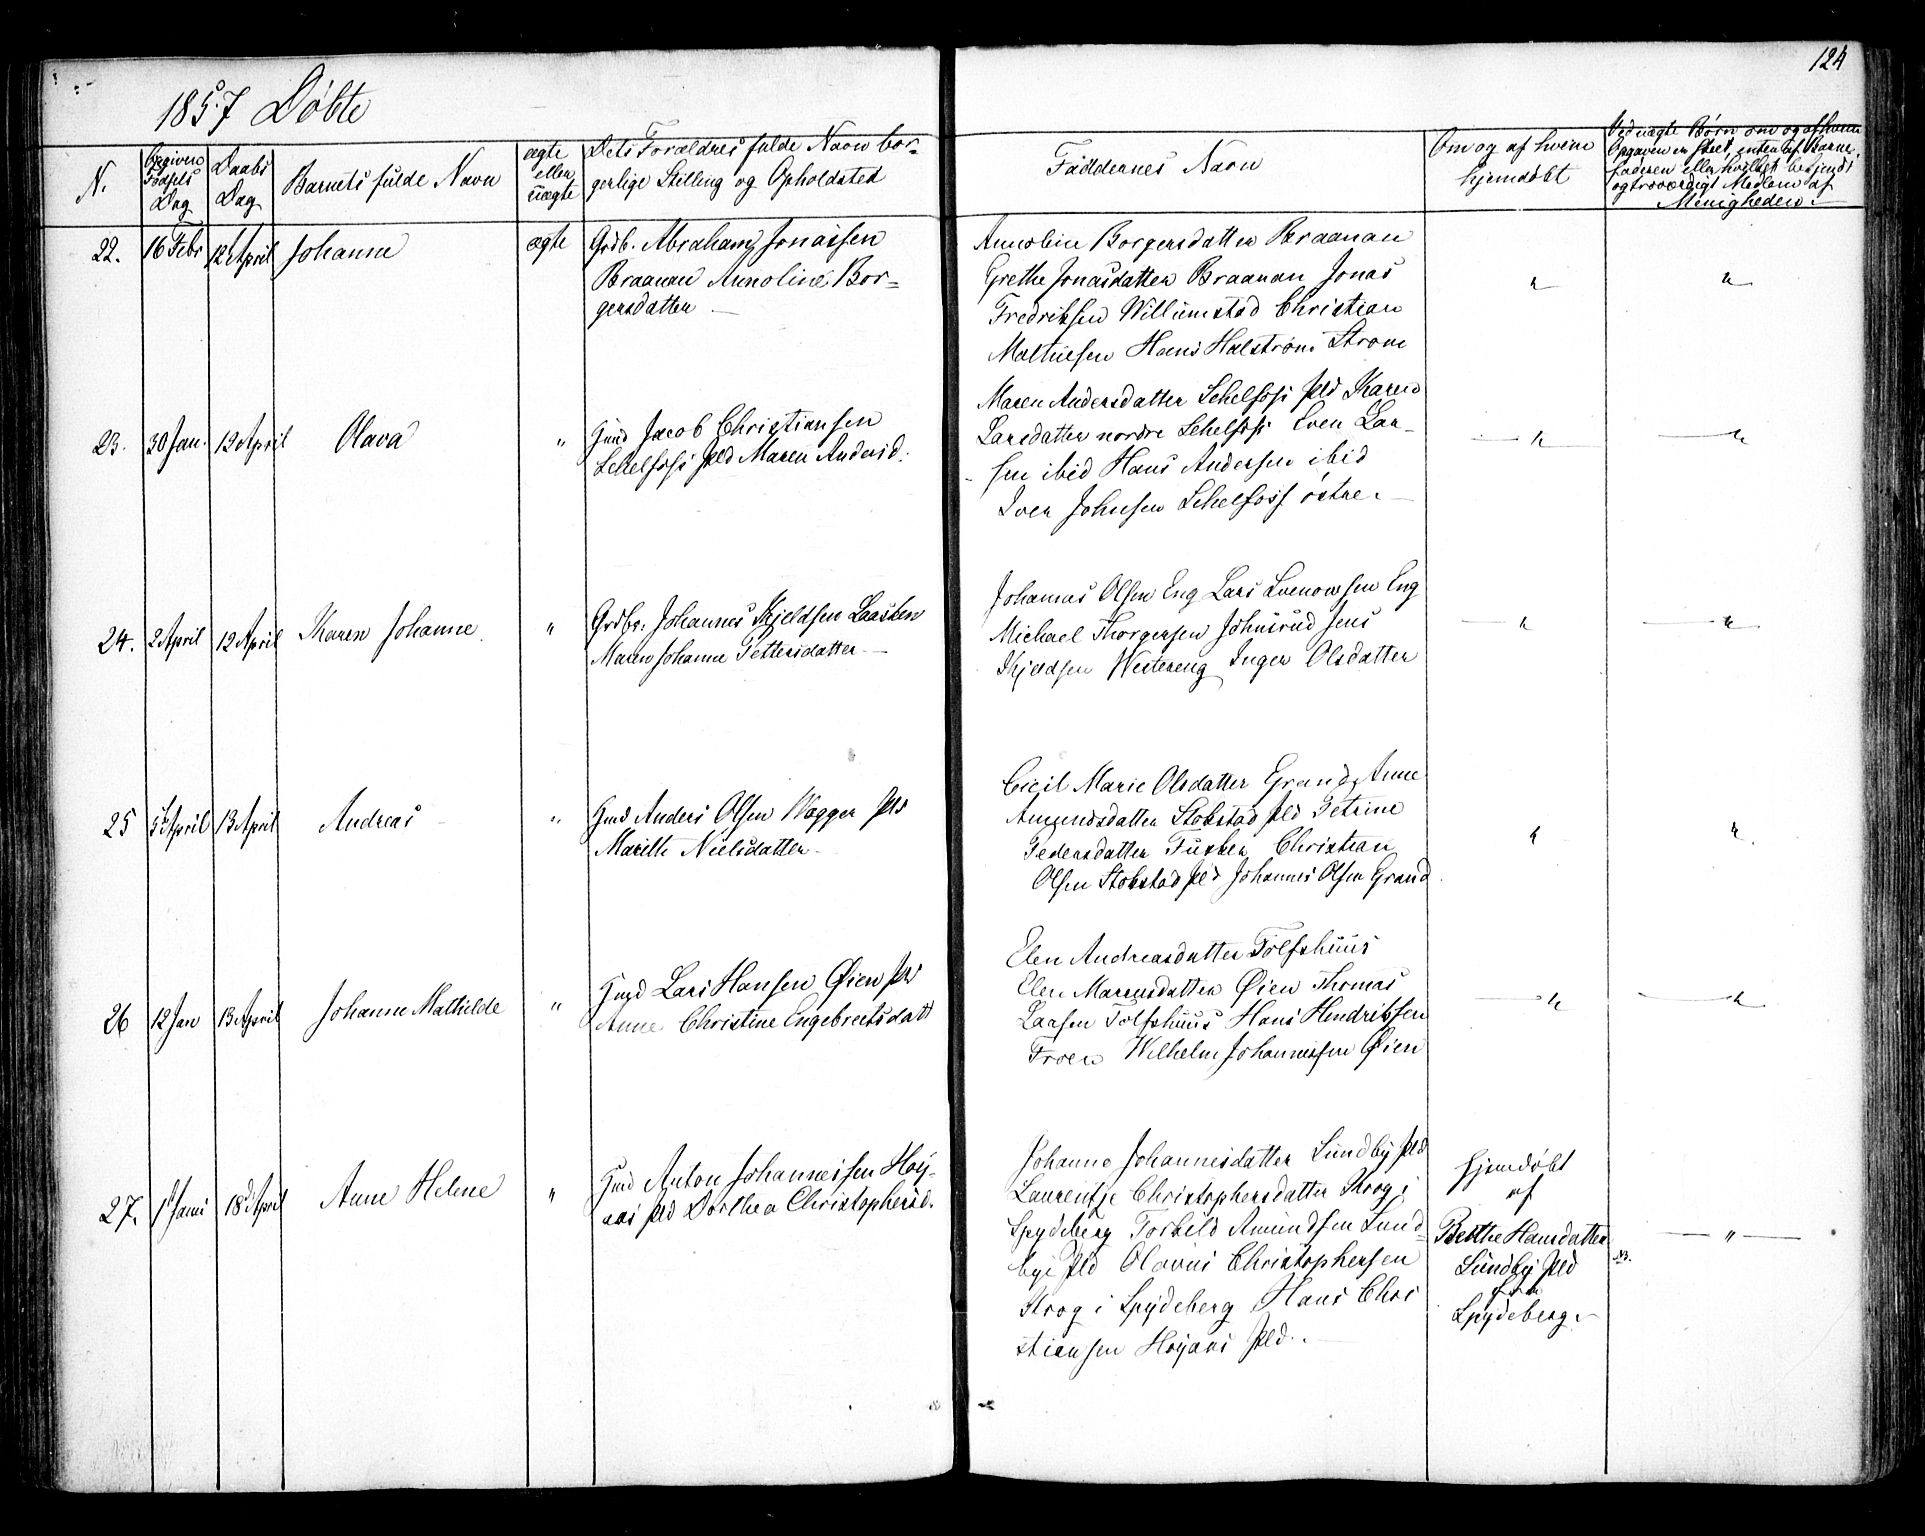 124
1857 Døbte
N.
begivens Fødsels Dag
Daabs Dag
Barnets fulde Navn
ægte eller uægte
Dets Forældres fulde Navn bor-
gerlige Stilling og Opholdsted
Faddernes Navn
Om og af hvem hjemdøbt
Ved uægte Børn om og af hvem
Opgaven er skeet, enten af Barne-
faderen eller hvilket bekjendt
og troværdigt Medlem af
Menigheden.
22. 16 Febr 12 April Johanne ægte Grdb. Abraham Jonassen
Braanan Annoline Bor-
gersdatter
Annoline Borgersdatter Braanan
Grethe Jonasdatter Braanan Jonas
Fredriksen Willumstad Christian
Mathiesen Hans Halstrøm Strøm
23. 30 Jan. 12 April Olava " Hmd Jacob Christiansen
Schelfoss Pld Maren Andersd.
Maren Andersdatter Schelfoss Pld Karen
Larsdatter nordre Schelfoss Even Lar-
sen ibid Hans Andersen ibid
Iver Johnsen Schelfoss østre.
24. 2 April 12 April Karen Johanne. " Grdbr. Johannes Kjeldsen Laasken
Maren Johanne Pettersdatter
Johannes Olsen Eng Lars Svenowsen Eng
Michael Thorgersen Johnsrud Jens
Kjeldsen Westereng Inger Olsdatter
25 5 April 13 April Andreas " Hmd Anders Olsen Wagger Pld
Marithe Nielsdatter
Cicil Marie Olsdatter Grand Anne
Amundsdatter Stokstad Pld Petrine
Pedersdatter Tusker Christian
Olsen Stokstad Pld Johannes Olsen Grand
26 12 Jan 13 April Johanne Mathilde " Hmd Lars Hansen Øien Pld
Anne Christine Engebretsdatt
Elen Andreasdatter Tolfshuus
Elen Marensdatter Øien Thomas
Larsen Tolfshuus Hans Hendriksen
Froen Wilhelm Johannessen Øien
27. 18 April Anne Helene " Hmd Anton Johannessen Høy-
aas Pld Dorthea Christophersd.
Johanne Johannesdatter Lundby Pld
Laurentze Christophersdatter Krog i
Spydeberg Torkild Amundsen Lund-
bye Pld Olavus Christophersen
Krog i Spydeberg Hans Chri
stiansen Høyaas Pld.
Hjemdøbt
af
Berthe Hansdatter
Lundby Pld
fra
Spydeberg.
NB.